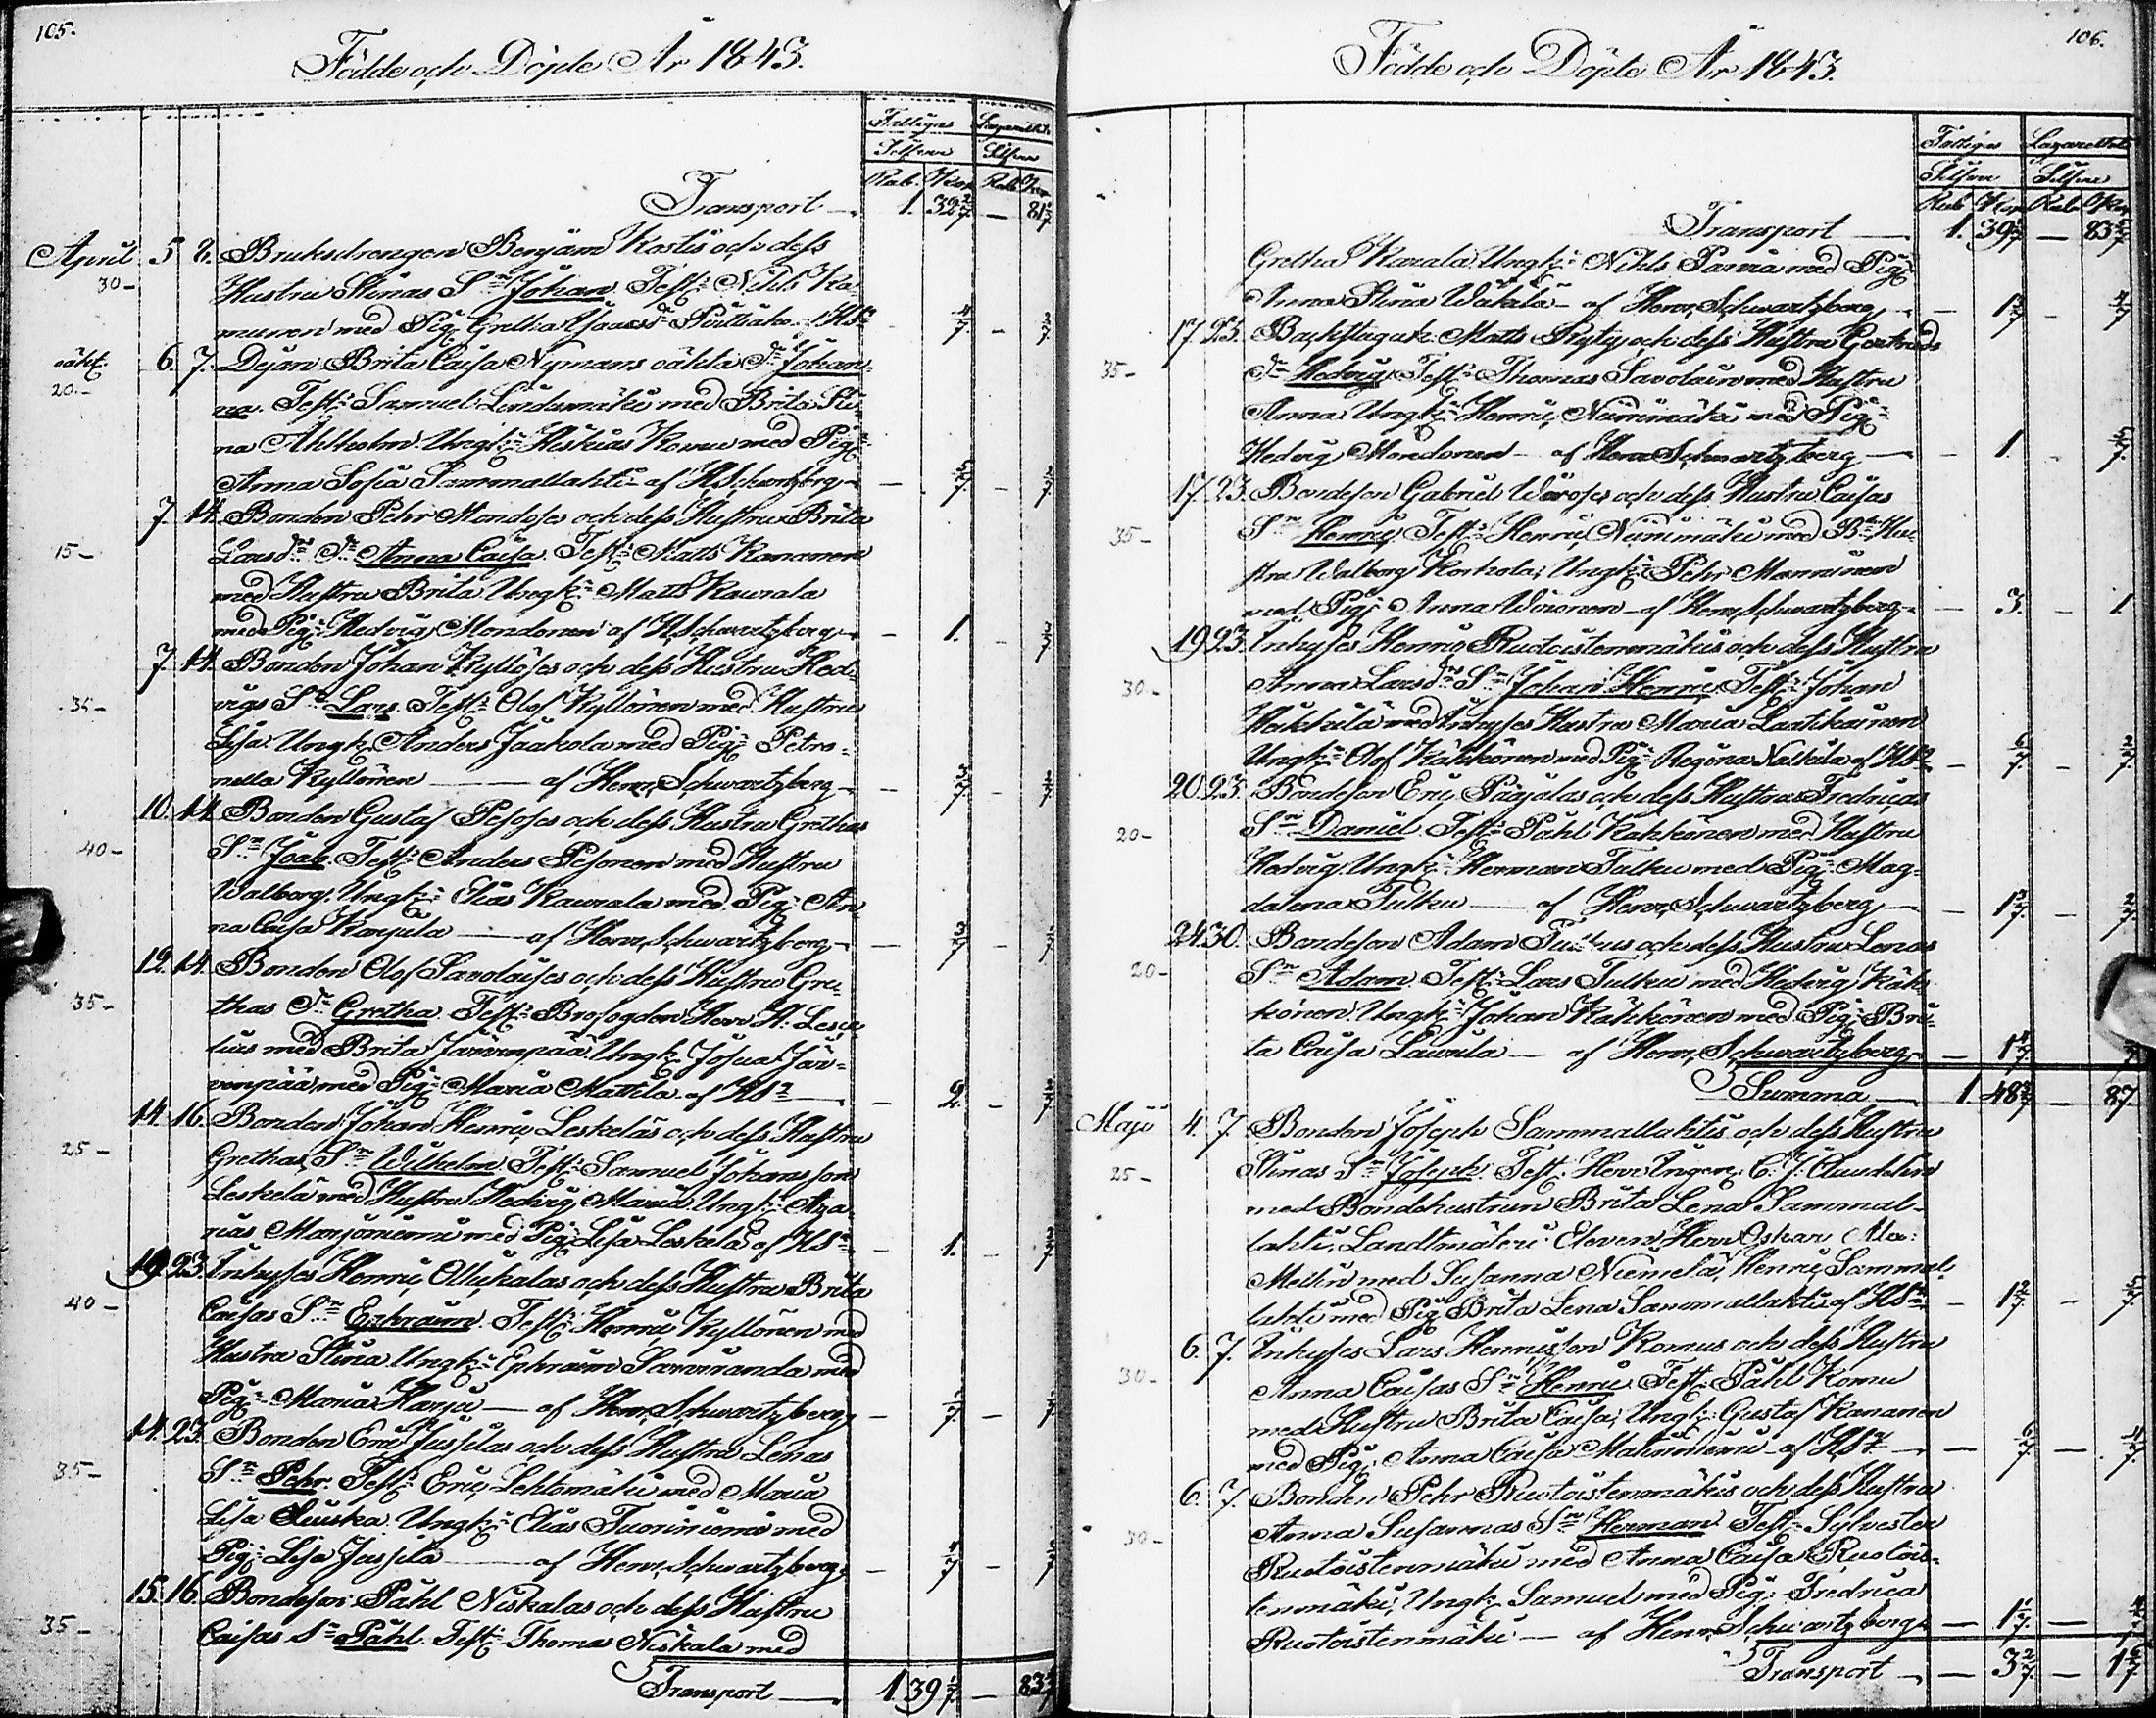 105.
Födde och Döpte År 1843.
Fattigas Lazarettet
Silfver Silfver
Rub. Kop Rub. Kop
Transport — 1. 32 2/7 — 81 3/7
April 5 8. Bruksdrengen Benjam Kostis och dess
30- Hustru Stinas S:n Johan. Test: Nihls Ka-
munen med Pig: Gretha Isaacsd:r af HS: 4/7 -
oäkt. 6. 7. Dejan Brita Caisa Nymans oäkta D:r Johan-
20.- na. Test: Samuel Lindumäki med Brita Sti-
na Ahlholm. Ungk: Heskias Komu med Pig:
Anna Sofia Sammallahti af H Schwartzberg -
7. 14. Bonden Pehr Mondoses och dess Hustru Brita
15- Larsd:r D:r Anna Caisa. Test: Matts Kananen
med Hustru Brita Ungk: Matts Kaurala
med Pig: Hedvig Mondonen af H Schwartzberg - 1. -
7. 14. Bonden Johan Kyllöses och dess Hustru Hed-
35- vigs S:n Lars. Test: Olof Kyllönen med Hustru
Lisa. Ungk: Anders Jaakola med Pig: Petro-
nella Kyllönen — af Herr Schwartzberg -
10. 14 Bonden Gustaf Pesoses och dess Hustru Grethas
40- S:n Joak. Test: Anders Pesonen med Hustru
Walborg. Ungk: Elias Kaurala med Pig: An-
na Caisa Karjula — af Herr Schwartzberg - 3/7
12. 14. Bonden Olof Savolaises och dess Hustru Gre-
35- thas D:r Gretha. Test: Brofogden Herr A: Lesce-
lius med Brita Järvenpää. Ungk: Josua Jär-
venpää med Pig: Maria Mattila af HS: — 2. -
14. 16. Bonden Johan Henric Leskeläs och dess Hustru
25- Grethas S:n Wilhelm. Test: Samuel Johansson
Leskelä med Hustru Hedvig Maria. Ungk: Aza-
rias Marjoniemi med Pig: Lisa Leskelä af HS: - 1. -
19. 23. Inhyses Henric Ollukalas och dess Hustru Brita
40- Caisas S:n Ephraim. Test: Henric Kyllönen med
Hustru Stina. Ungk: Ephraim med
Pig: Maria Harja — af Herr Schwartzberg -
14. 23. Bonden Eric Jussilas och dess Hustru Lenas
35- S:n Pehr. Test: Eric Lehtomäki med Maria
Lisa Ungk: Elias Tuoriniemi med
Pig: Lisa Jussila — af Herr Schwartzberg - 4/7
15. 16. Bondeson Påhl Niskalas och dess Hustru
35- Caisas S:n Påhl. Test: Thomas Niskala med
Transport — 1 39 — 83
106.
Födde och Döpte År 1843.
Fattigas Lazarettet
Silfver Silfver
Rub. Kop Rub. Kop
Transport — 1. 39 — 83
Gretha Karala. Ungk: Nihls Parvia med Pig:
Anna Stina Wäkälä - af Herr Schwartzberg -
17. 23. Backstuguk: Matts Rytys och dess Hustru Gertruds
35- D:r Hedvig. Test: Thomas Savolain med Hustru
Anna. Ungk: Henric Niinimäki med Pig:
Hedvig Mondonen - af Herr Schwartzberg — 1
17. 23. Bondeson Gabriel Wäroses och dess Hustru Caisas
35- S:n Henric. Test: Henric Niinimäki med B:de Hu-
stru Walborg Korhola; Ungk: Pehr Manninen
med Pig: Anna Wäronen - af Herr Schwartzberg - 3. - 1
19 23. Inhyses Henric Ruotoistenmäkis och dess Hustru
30- Anna Larsd:r S:n Johan Henric. Test: Johan
Heikkilä med Inhyses Hustru Maria Laatikainen
Ungk: Olof Kähkönen med Pig: Regina af HS: 6/7
20 23. Bondeson Eric Pääjälas och dess Hustru Fredricas
20- S:n Daniel. Test: Påhl Kähkönen med Hustru
Hedvig. Ungk: Herman Tulku med Pig: Mag-
dalena Tulku — af Herr Schwartzberg -
24 30. Bondeson Adam Tulkus och dess Hustru Lenas
20- S:n Adam. Test: Lars Tulku med Hedvig Käh-
könen. Ungk: Johan Kähkönen med Pig: Bri-
ta Caisa Laurila — af Herr Schwartzberg -
Summa — 1. 48 — 87.
Maji 4. 7. Bonden Joseph Sammallahtis och dess Hustru
25- Stinas S:n Joseph. Test: Herr Ingen: C. J. Claudelin
med Bondehustrun Brita Lena Sammal-
lahti, Landtmäteri Eleven Herr Oskar Alex:
Mellin med Susanna Niemelä, Henric Sammal-
lahti med Pig: Brita Lena Sammallahti af HS:
6. 7. Inhyses Lars Henricsson Komus och dess Hustru
30- Anna Caisas S:n Henric. Test: Påhl Komu
med Hustru Brita Caisa; Ungk: Gustaf Kananen
med Pig: Anna Caisa Malininiemi af HS: — 6/7
6. 7. Bonden Pehr Ruotoistenmäkis och dess Hustru
30- Anna Susannas S:n Herman. Test: Sylvester
Ruotoistenmäki med Anna Caisa Ruotois-
tenmäki; Ungk: Samuel med Pig: Fredrica
Ruotoistenmäki — af Herr Schwartzberg -
Transport — 3 2/7 — 1